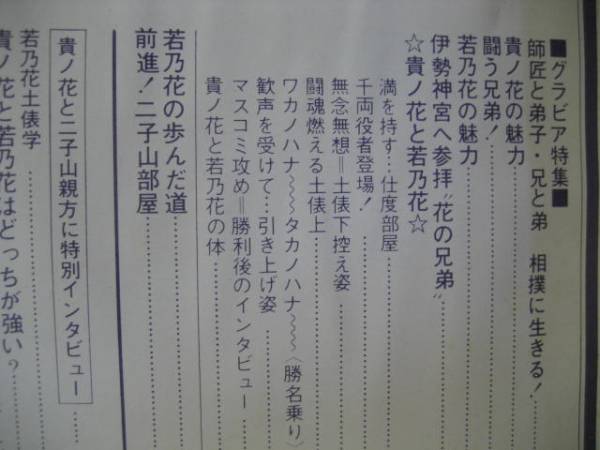 ■グラビア特集■
師匠と弟子・兄と弟　相撲に生きる！……
貴ノ花の魅力……
闘う兄弟！……
若乃花の魅力……
伊勢神宮へ参拝〝花の兄弟〟……
☆貴ノ花と若乃花☆
満を持す…仕度部屋……
千両役者登場！……
無念無想＝土俵下控え姿……
闘魂燃える土俵上……
ワカノハナ〜〜タカノハナ〜〜〈勝名乗り〉
歓声を受けて…引き上げ姿……
マスコミ攻め＝勝利後のインタビュー……
貴ノ花と若乃花の体……
若乃花の歩んだ道……
前進！二子山部屋……
貴ノ花と二子山親方に特別インタビュー……
若乃花土俵学……
貴ノ花と若乃花はどっちが強い？……